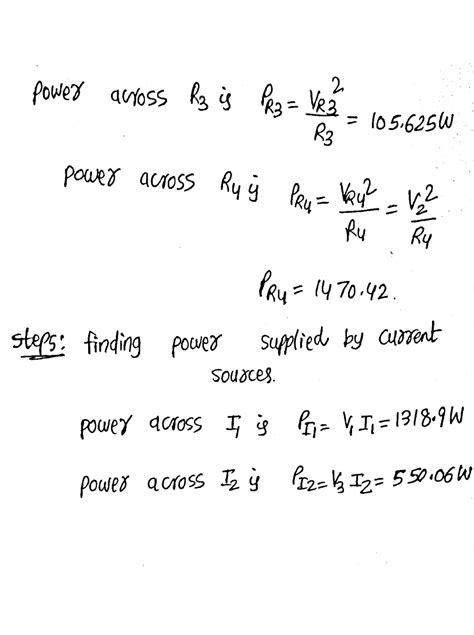 power across R3 is PR3 = VR3² / R3 = 105.625W
power across R4 is PR4 = VR4² / R4 = V2² / R4
PR4 = 1470.42.
step5: finding power supplied by current
sources.
power across I1 is PI1 = V1 I1 = 1318.9W
power across I2 is PI2 = V3 I2 = 550.06W